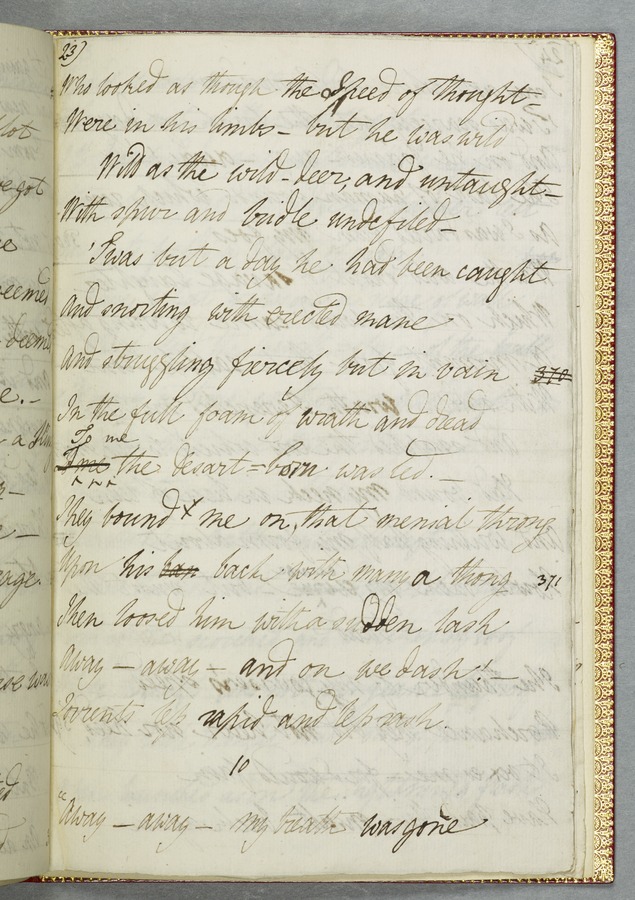 23)
Who looked as though the Speed of thought—
Were in his limbs — but he was wild
Wild as the wild-deer, and untaught—
With spur and bridle undefiled—
'Twas but a day he had been caught
And snorting with erected mane
And struggling fiercely but in vain 370
In the full foam of wrath and dread
To me
the desart=born was led.—
They bound me on, that menial throng
Upon his back with many a thong 371
Then loosed him with a sudden lash
Away — away — and on we dash!—
Torrents less rapid and less rash.
10
"Away — away — my breath was gone